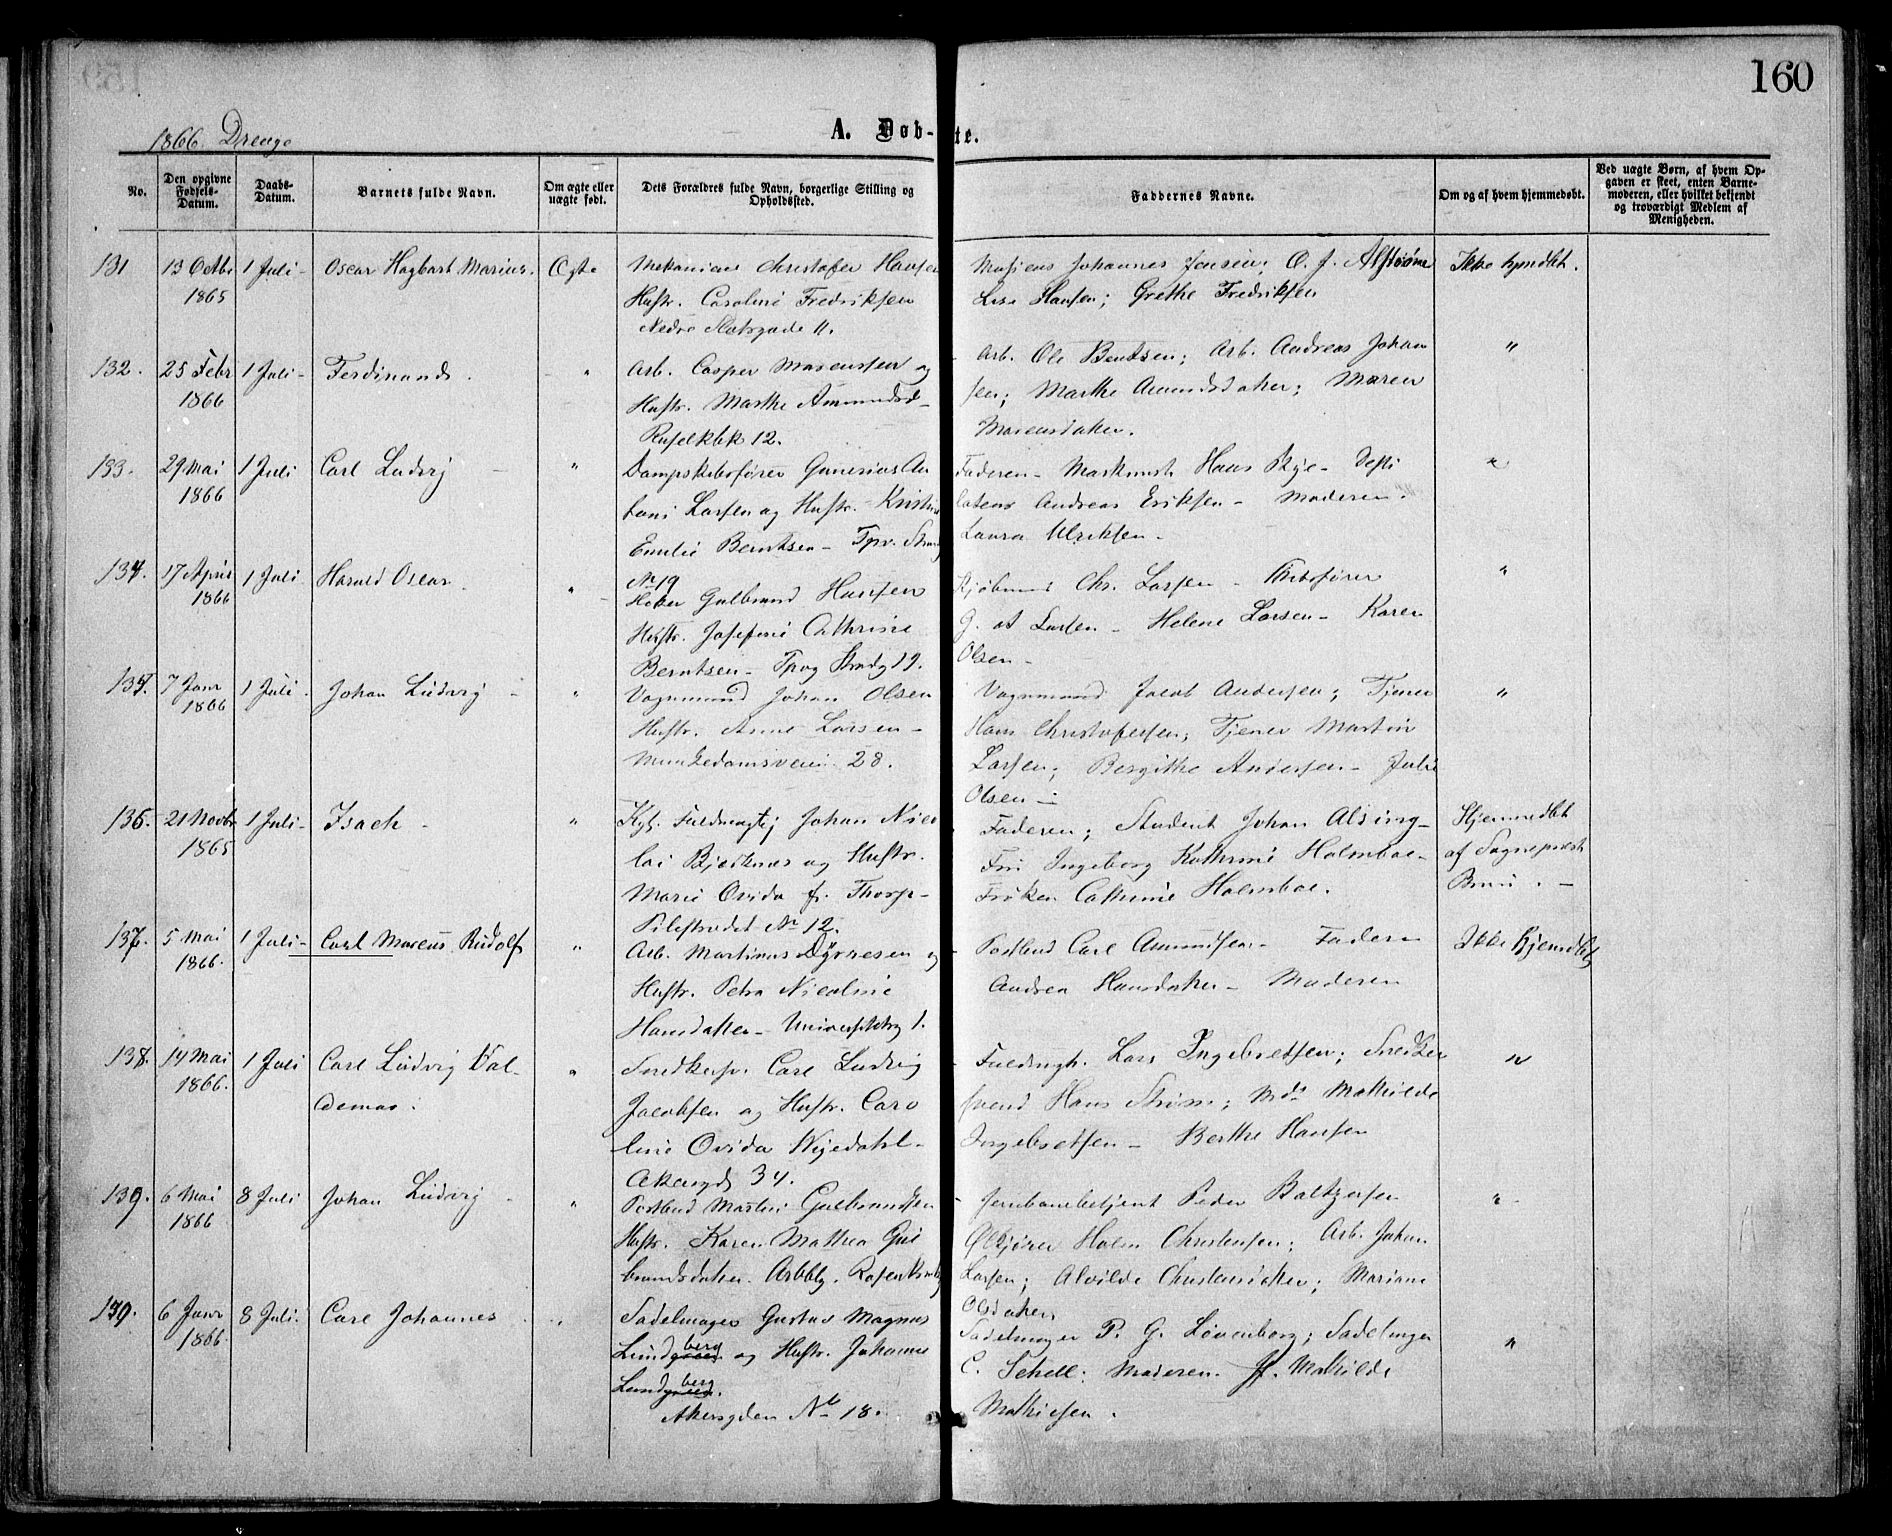 160
1866 Drenge
A. Døb-te.
No.
Den opgivne Fødsels-Datum.
Daabs-Datum.
Barnets fulde Navn.
Om ægte eller uægte født.
Dets Forældres fulde Navn, borgerlige Stilling og Opholdssted.
Faddernes Navne.
Om og af hvem hjemmedøbt.
Ved uægte Børn, af hvem Opgaven er skeet, enten Barnemoderen, eller hvilket bekjendt og troværdigt Medlem af Menigheden.
131 13 Octbr 1 Juli - Oscar Hagbart Marius. Ægte Mekanicus Christofer Hansen Johannes Jensen; O. J. Alstrøm Ikke hjmdbt.
1865 Hustr. Caroline Fredriksen Lise Hansen; Grethe Fredriksen
Nedre Slotsgade 11.
132. 25 Febr 1 Juli - Ferdinand. " Arb. Casper Marensen og Arb. Ole Bentsen; Arb. Andreas Johan "
1866 Hustr. Marthe Amundsd - sen; Marthe Amundsdater; Maren
Ruselkbk 12. Marensdater.
133. 29 Mai 1 Juli Carl Ludvig " Dampskibsfører Gunerius An Faderen - Maskinist Hans Rye - Desti "
1866 toni Larsen og Hustr. Kristine latør Andreas Eriksen - Moderen.
Emilie Berntsen - Laura Ulriksen -
134. 17 April 1 Juli Harald Oscar. " No 19
1866 Høker Gulbrand Hansen Kjøbmand Chr. Larsen - Skibsfører "
Hustr. Josefine Cathrine G. A Larsen - Helene Larsen - Karen
Berntsen - 19. Olsen -
135. 7 Janr 1 Juli. Johan Ludvig - " Vognmand Johan Olsen Vognmand Jacob Andersen; Tjener "
1866 Hustr. Anne Larsen - Hans Christofersen; Tjener Martin
Munkedamsveien 28. Larsen; Bergithe Andersen - Julie
Olsen -
136. 21 Novbr 1 Juli - Isach - " Kgl. Fuldmægtig Johan Nico Faderen; Student Johan Alsing - Hjemmedbt
1865 lai Bjerknes og Hustr. Fru Ingeborg Kathrine Holmboe - af Sognepræst
Marie Ovida f. Thorp - Frøken Cathrine Holmboe. Bruun. -
Pilestrædet No 12.
137. 5 Mai 1 Juli - Carl Marcus Rudolf " Arb. Martinus Dyrresen og Postbud Carl Amundsen - Faderen Ikke Hjemdbt
1866. Hustr. Petra Nicoline Andrea Hansdater - Moderen
Hansdatter - Universitetsg 1.
138. 14 Mai 1 Juli Carl Ludvig Val- " Snedkersv. Carl Ludvig Fuldmgt. Lars Ingebretsen; Snedker "
1866. demar. Jacobsen og Hustr. Caro svend Hans Strøm; Md. Mathilde
line Ovida Ingebretsen - Berthe Hansen
Akersgd 34.
139. 6 Mai 8 Juli Johan Ludvig - " Postbud Martin Gulbrandsen Jernbanebetjent Peder Baltzersen "
1866 Hustr. Karen Mathea Gul Holm Christensen; Arb. Johan
brandsdater. Larsen; Alvilde Christensdater; Mariane
Olsdater
139. 6 Janr 8 Juli. Carl Johannes. " Sadelmager Gustav Magnus Sadelmager P. G. Løvenborg; Sadelmager "
1866. Lundberg og Hustr. Johanne C. Schell; Moderen. Jf. Mathilde
Lundberg. Mathiesen.
Akersgden No 18.